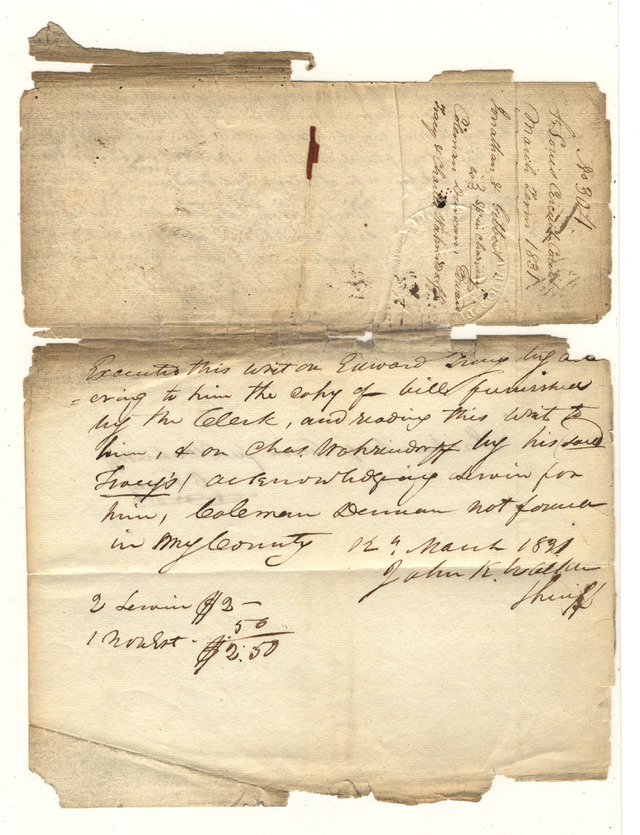 No 304
St Louis Circuit Court
March Term 1831
Jonathan
vs } Sp in chancery
Coleman Duncan, Edward
Tracy & Charles Wahrendorff
Executed this writ on Edward Tracy by
to him the copy of bill furnished
by the Clerk, and reading this writ to
him, & on Chas. Wahrendorff by his
Tracy's) acknowledging servis for
him, Coleman Duncan not found
in my County 12th March 1831
John K. Walker
Sheriff
2 Servis $2 —
1 Non Est - 50
$2.50